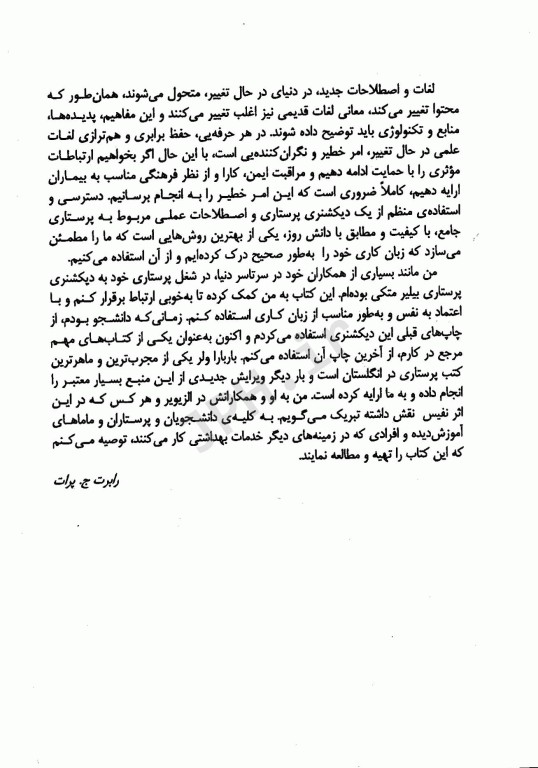 لغات و اصطلاحات جدید، در دنیای در حال تغییر، متحول می‌شوند، همان‌طور که
محتوا تغییر می‌کند، معانی لغات قدیمی نیز اغلب تغییر می‌کنند و این مفاهیم، پدیده‌ها،
منابع و تکنولوژی باید توضیح داده شوند. در هر حرفه‌یی، حفظ برابری و هم‌ترازی لغات
علمی در حال تغییر، امر خطیر و نگران‌کننده‌یی است، با این حال اگر بخواهیم ارتباطات
مؤثری را با حمایت ادامه دهیم و مراقبت ایمن، کارا و از نظر فرهنگی مناسب به بیماران
ارایه دهیم، کاملاً ضروری است که این امر خطیر را به انجام برسانیم. دسترسی و
استفاده‌ی منظم از یک دیکشنری پرستاری و اصطلاحات عملی مربوط به پرستاری
جامع، با کیفیت و مطابق با دانش روز، یکی از بهترین روش‌هایی است که ما را مطمئن
می‌سازد که زبان کاری خود را به‌طور صحیح درک کرده‌ایم و از آن استفاده می‌کنیم.
من مانند بسیاری از همکاران خود در سرتاسر دنیا، در شغل پرستاری خود به دیکشنری
پرستاری بیلیر متکی بوده‌ام. این کتاب به من کمک کرده تا به‌خوبی ارتباط برقرار کنم و با
اعتماد به نفس و به‌طور مناسب از زبان کاری استفاده کنم. زمانی‌که دانشجو بودم، از
چاپ‌های قبلی این دیکشنری استفاده می‌کردم و اکنون به‌عنوان یکی از کتاب‌های مهم
مرجع در کارم، از آخرین چاپ آن استفاده می‌کنم. باربارا ولر یکی از مجرب‌ترین و ماهرترین
کتب پرستاری در انگلستان است و بار دیگر ویرایش جدیدی از این منبع بسیار معتبر را
انجام داده و به ما ارایه کرده است. من به او و همکارانش در الزیویر و هر کس که در این
اثر نفیس نقش داشته تبریک می‌گویم. به کلیه‌ی دانشجویان و پرستاران و ماماهای
آموزش‌دیده و افرادی که در زمینه‌های دیگر خدمات بهداشتی کار می‌کنند، توصیه می‌کنم
که این کتاب را تهیه و مطالعه نمایند.
رابرت ج. پرات